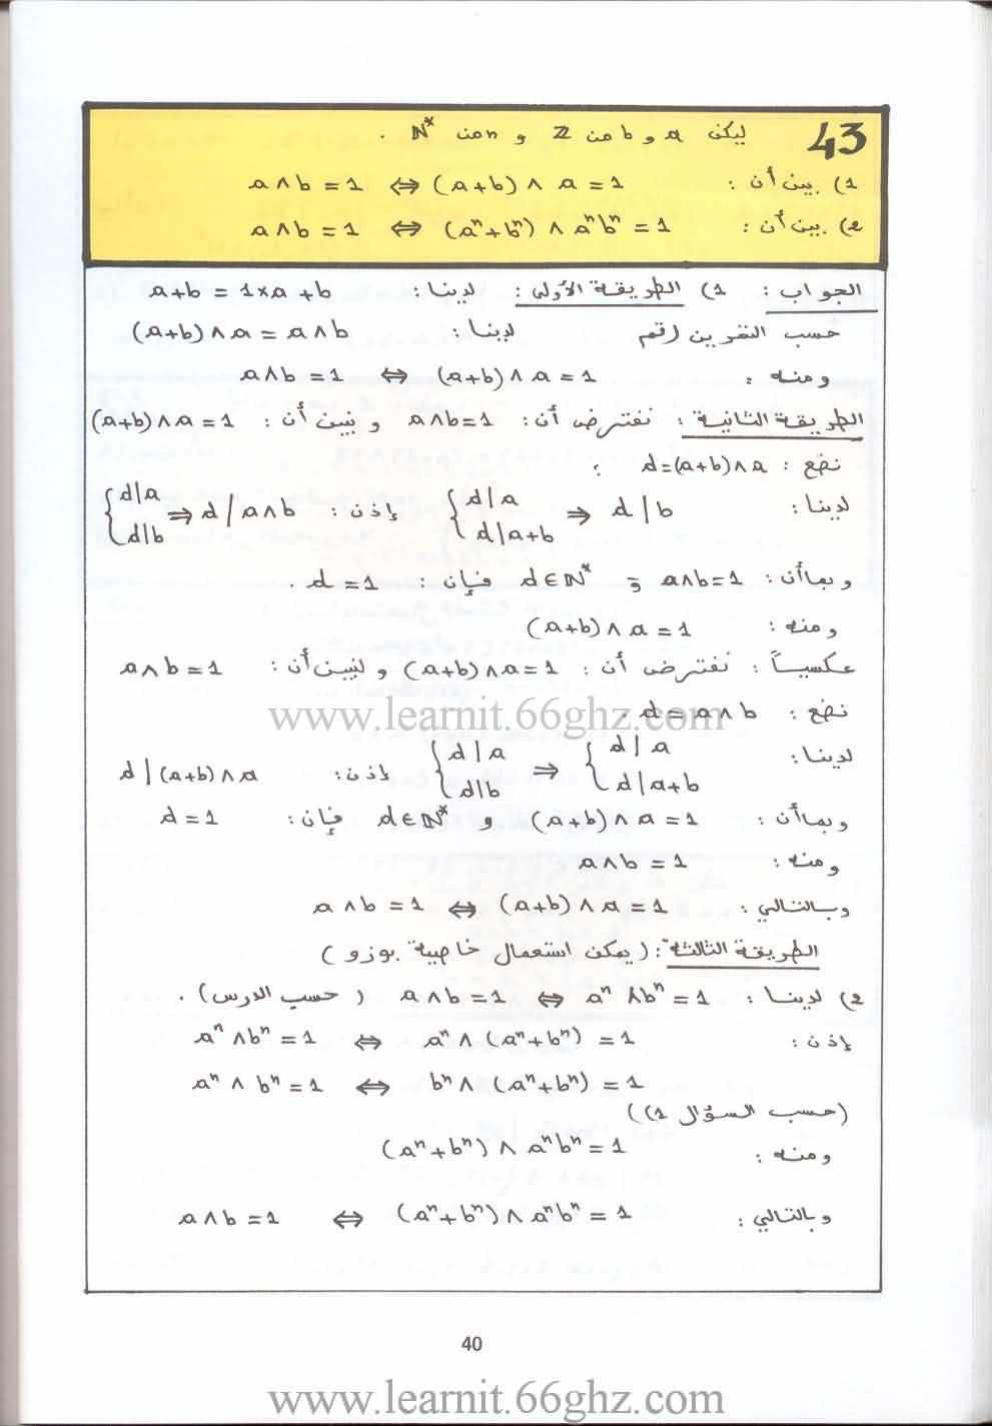 43 ليكن a و b من ℤ و n من ℕ* .
1) بين أن : a∧b = 1 ⇔ (a+b) ∧ a = 1
2) بين أن : a∧b = 1 ⇔ (aⁿ+bⁿ) ∧ aⁿbⁿ = 1
الجواب : 1) الطريقة الأولى : لدينا : a+b = 1×a+b
حسب التمرين رقم لدينا : (a+b)∧a = a∧b
ومنه : a∧b = 1 ⇔ (a+b)∧a = 1
الطريقة الثانية : نفترض أن : a∧b=1 و نبين أن : (a+b)∧a = 1
نضع : d=(a+b)∧a ;
لدينا : { d|a , d|a+b ⇒ d|b إذن : { d|a , d|b ⇒ d|a∧b
وبما أن : a∧b=1 و d∈ℕ* فإن : d=1 .
ومنه : (a+b)∧a = 1
عكسياً : نفترض أن : (a+b)∧a=1 و لنبين أن : a∧b=1
نضع : d=a∧b .
www.learnit.66ghz.com
لدينا : { d|a , d|b ⇒ { d|a , d|a+b إذن : d|(a+b)∧a
وبما أن : (a+b)∧a = 1 و d∈ℕ* فإن : d=1
ومنه : a∧b = 1
وبالتالي : a∧b = 1 ⇔ (a+b)∧a = 1
الطريقة الثالثة : (يمكن استعمال خاصية بوزو)
2) لدينا : a∧b = 1 ⇔ aⁿ∧bⁿ = 1 (حسب الدرس) .
إذن : aⁿ∧bⁿ = 1 ⇔ aⁿ∧(aⁿ+bⁿ) = 1
aⁿ∧bⁿ = 1 ⇔ bⁿ∧(aⁿ+bⁿ) = 1
(حسب السؤال 1))
ومنه : (aⁿ+bⁿ)∧aⁿbⁿ = 1
وبالتالي : a∧b = 1 ⇔ (aⁿ+bⁿ)∧aⁿbⁿ = 1
40
www.learnit.66ghz.com